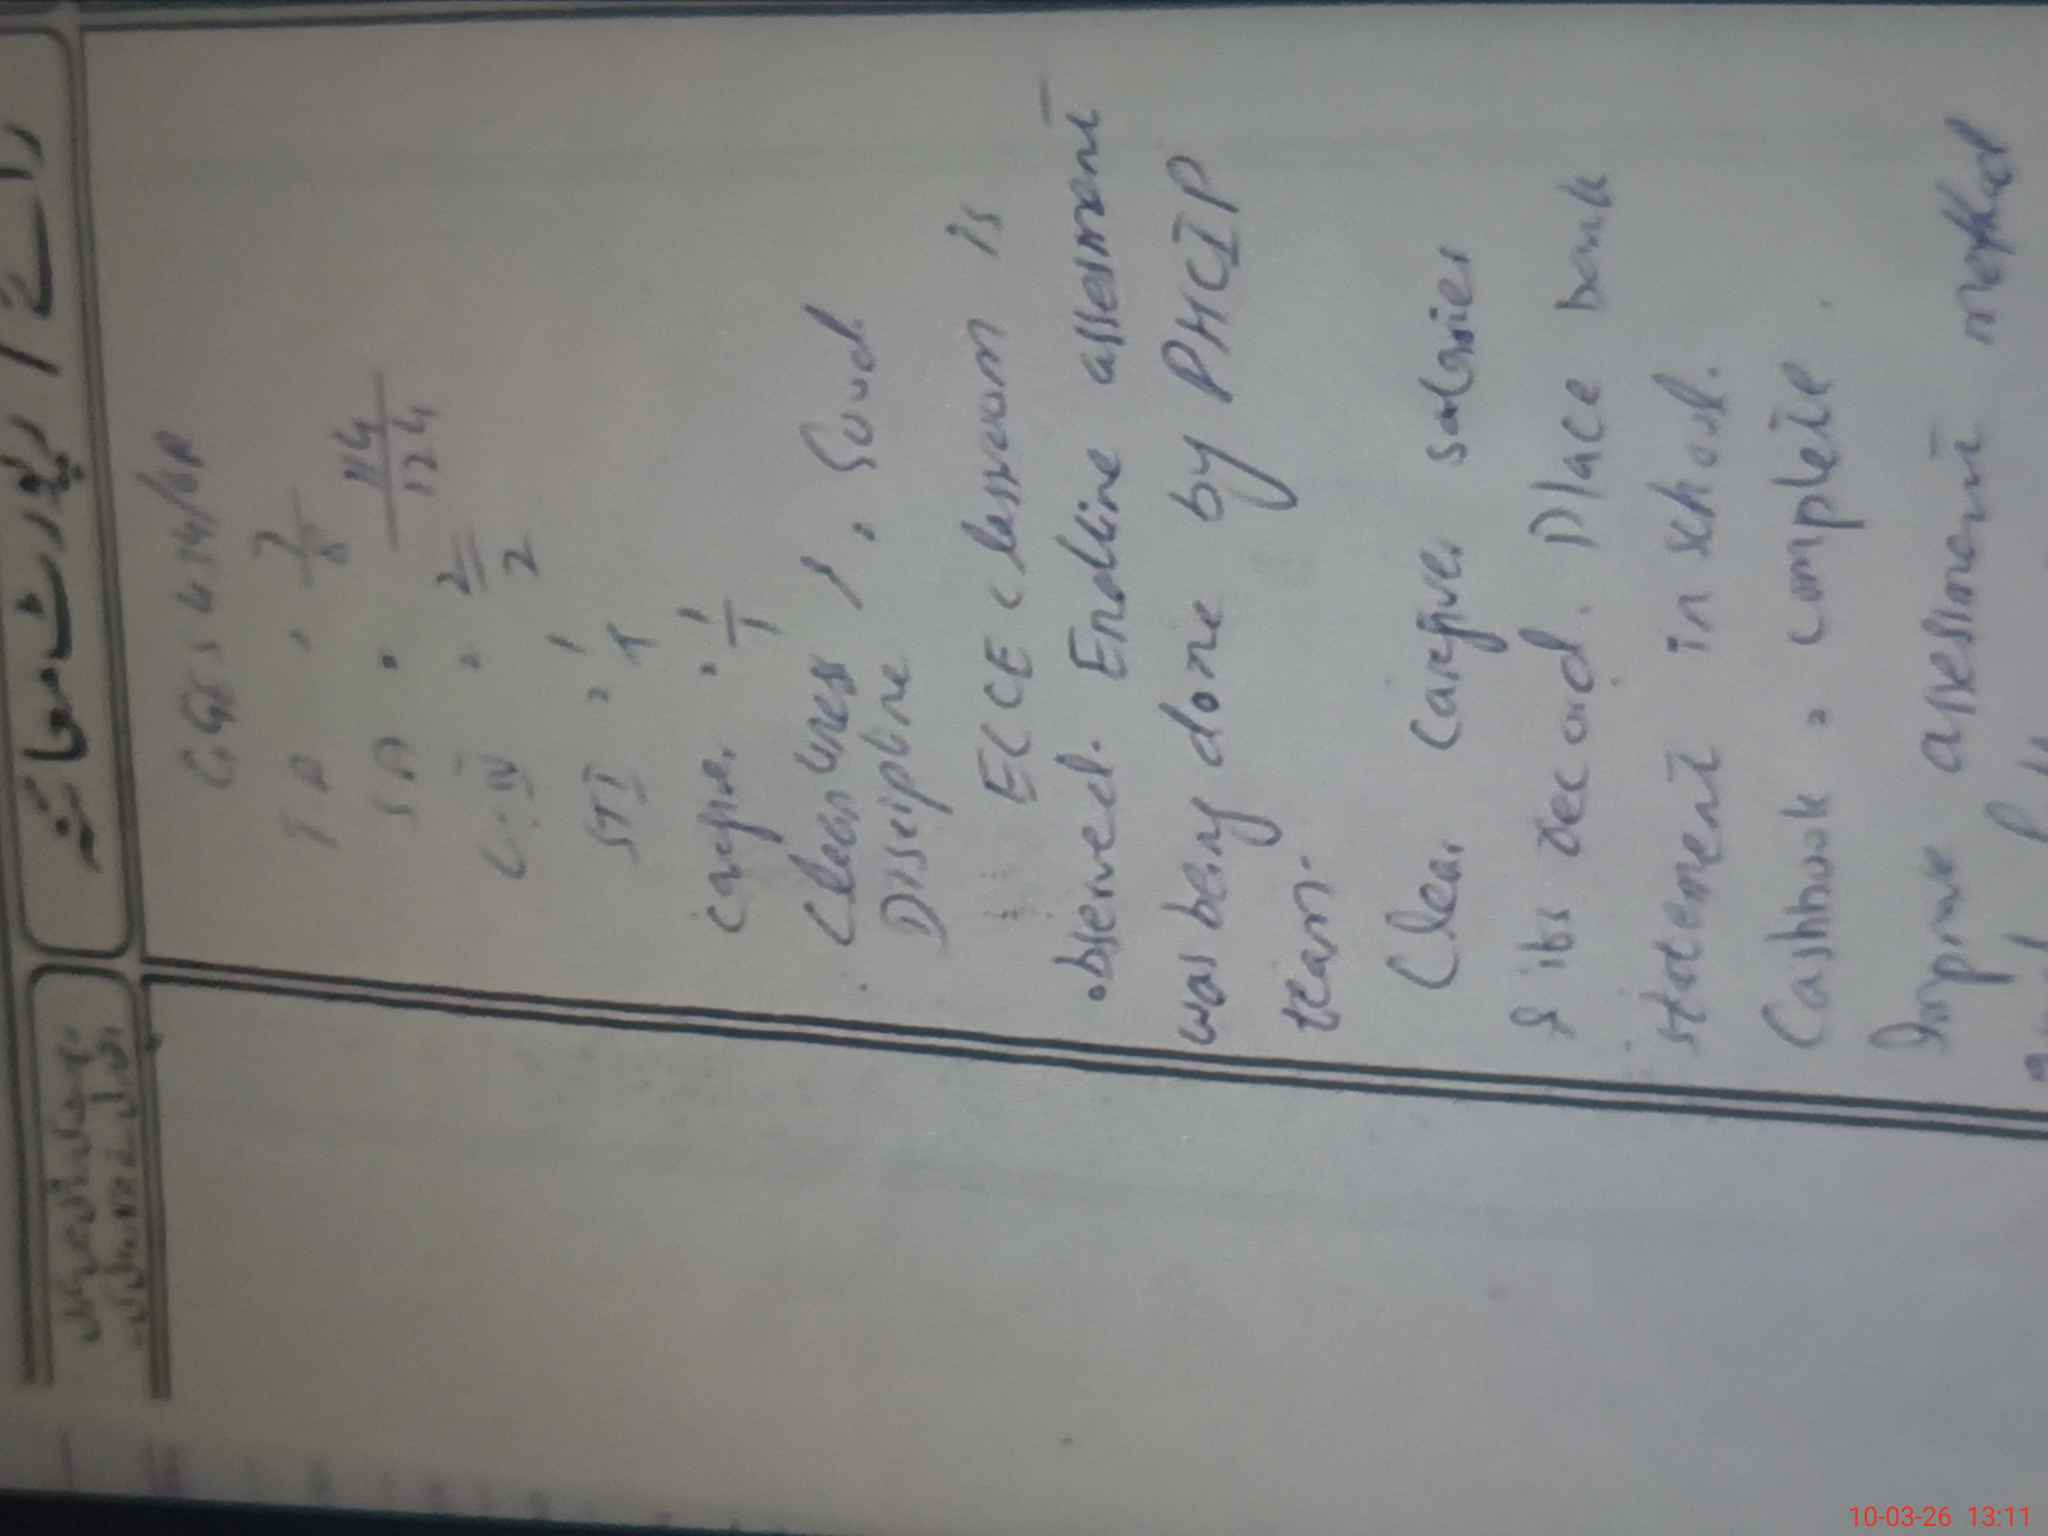 رائے / رپورٹ معائنہ
GGES 434/6R
TA : 7/8
SA : 114/124
C-IV : 2/2
STI : 1/1
Cargiver : 1/1
Cleanliness & : Good
Discipline
ECCE classroom is
observed. Endline assessment
was being done by PHCIP
team.
Clear Cargiver salaries
& its record. Place bank
statement in school.
Cashbook : complete.
Improve assessment method
10-03-26 13:11